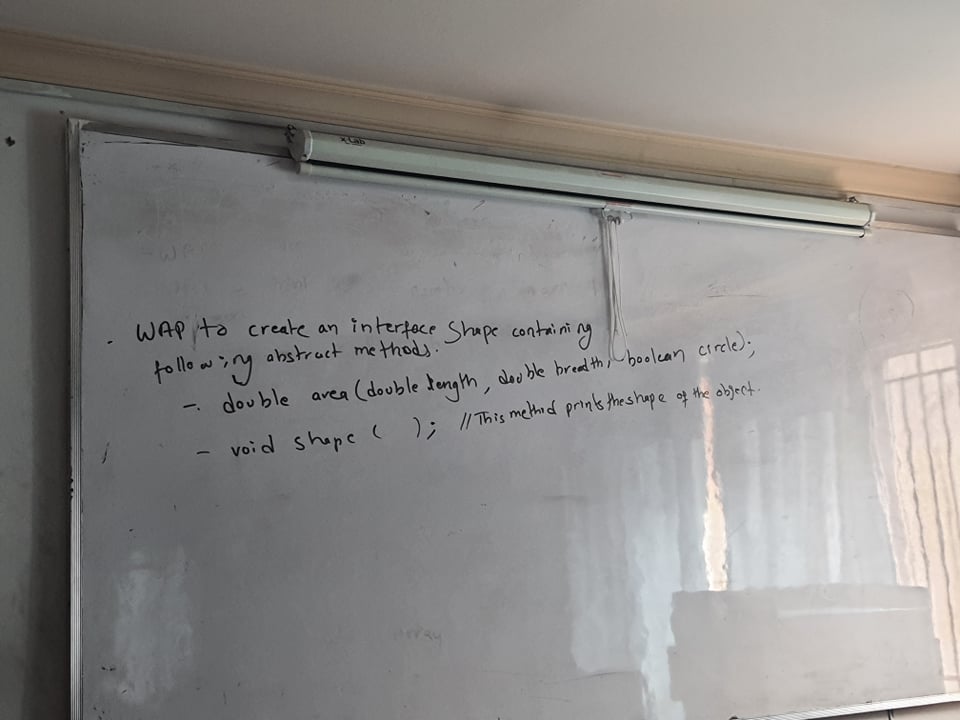 x-Lab
. WAP to create an interface Shape containing
following abstract methods.
- double area(double length, double breadth, boolean circle);
- void shape ( ); //This method prints the shape of the object.
Array